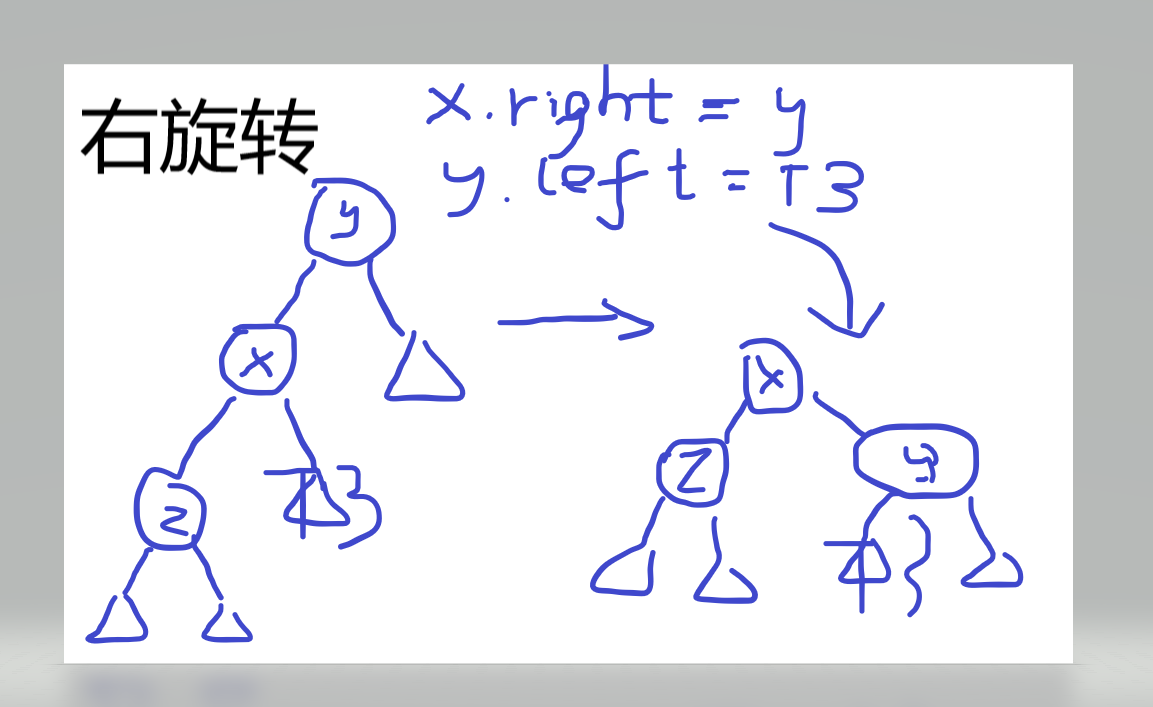 右旋转
x.right = y
y.left = T3
y
x
z
T3
x
z
y
T3